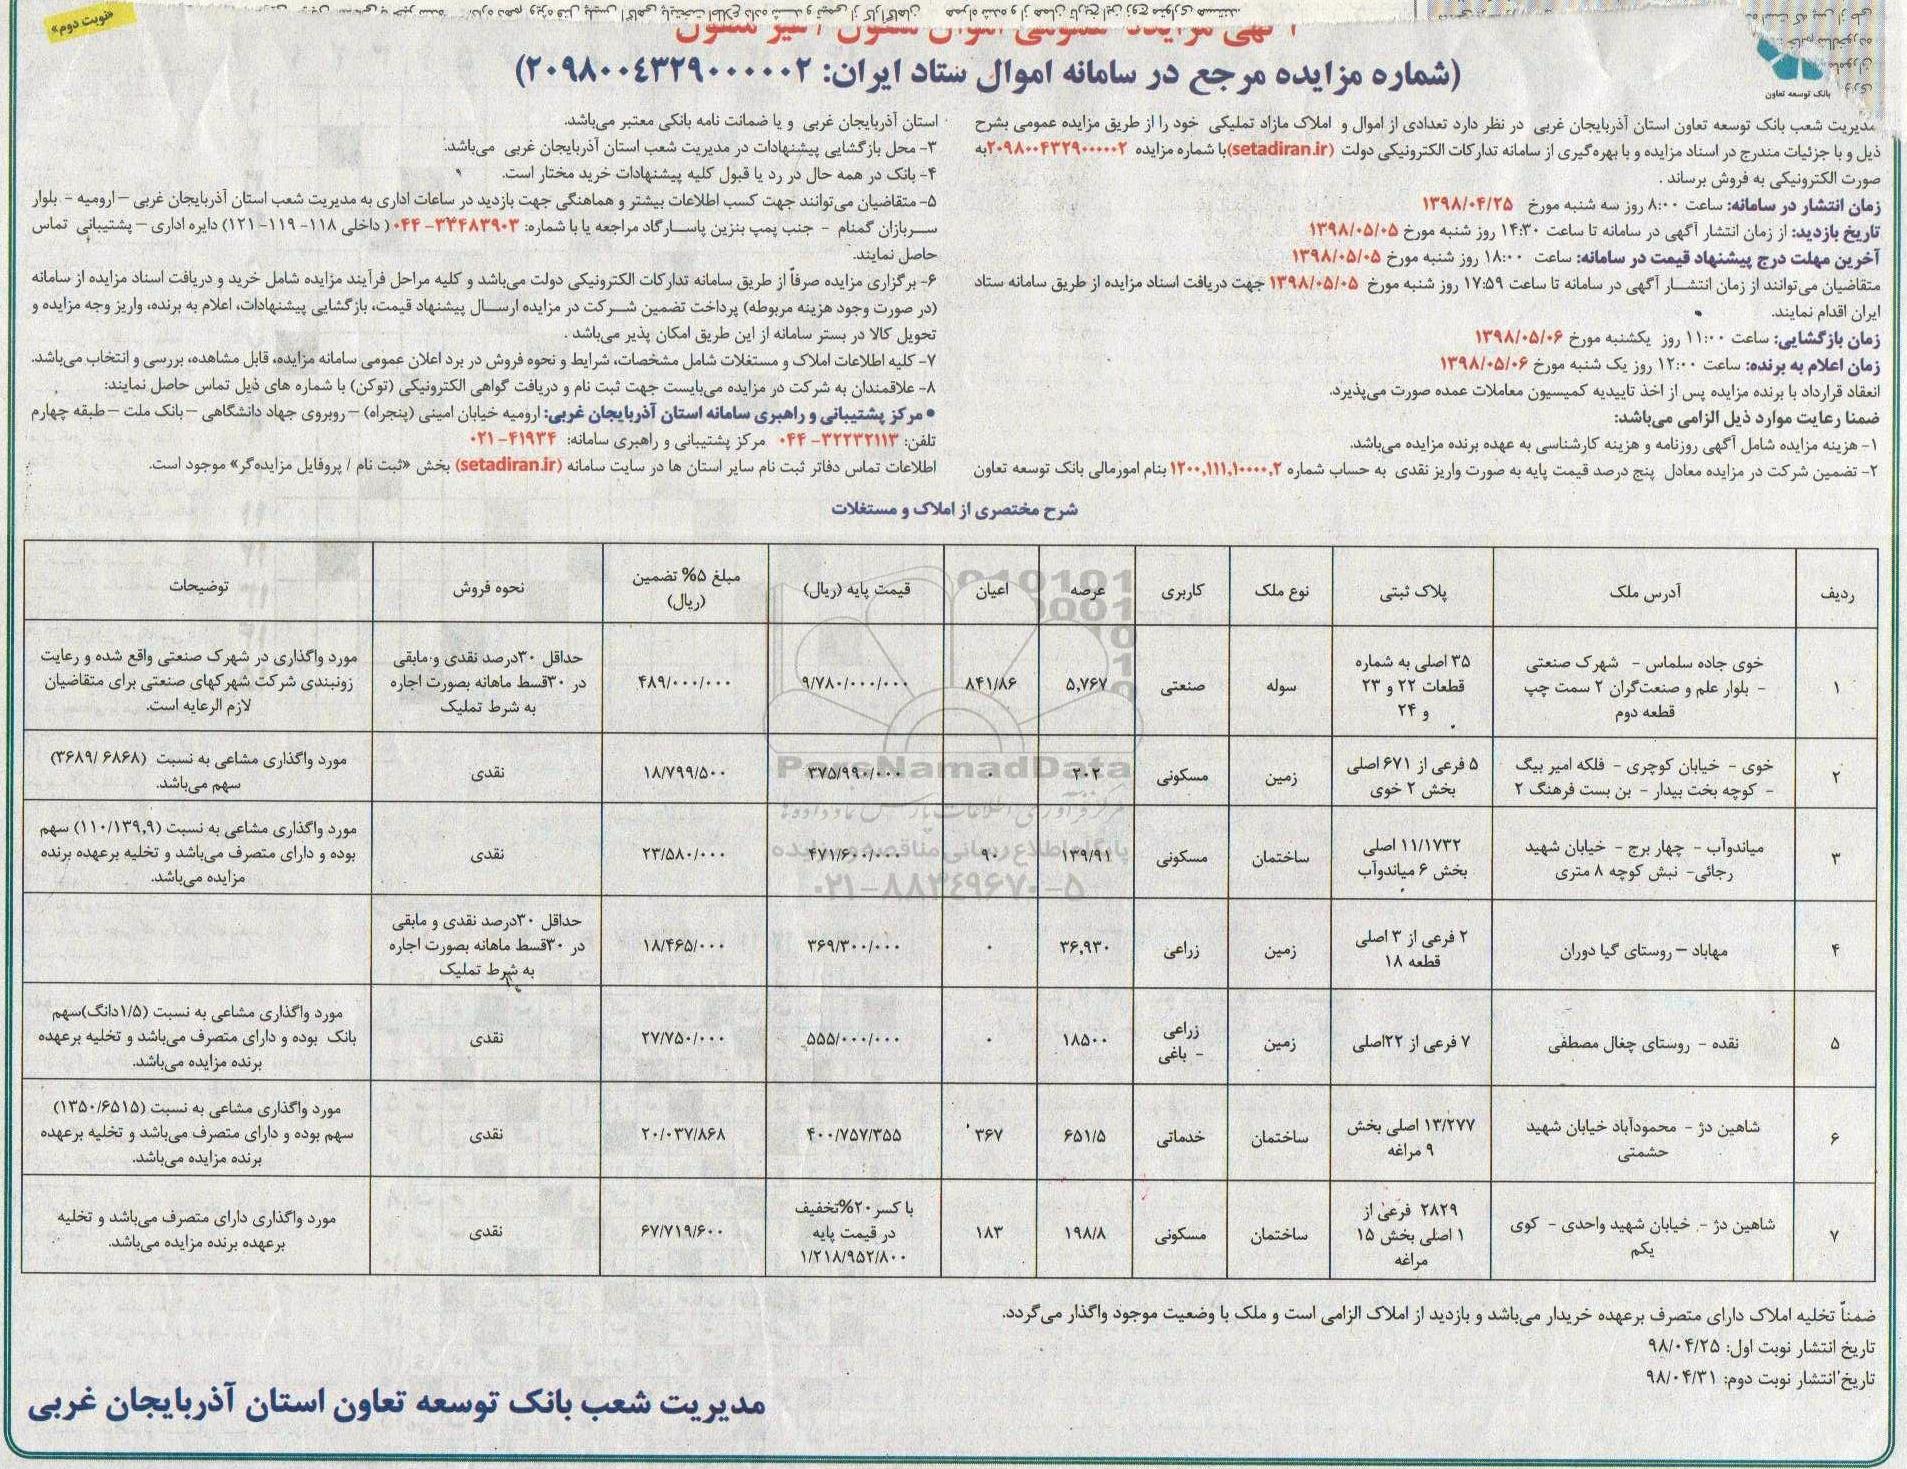 «نوبت دوم»
(شماره مزایده مرجع در سامانه اموال ستاد ایران: ۲۰۹۸۰۰۴۳۲۹۰۰۰۰۰۲)
بانک توسعه تعاون
مدیریت شعب بانک توسعه تعاون استان آذربایجان غربی در نظر دارد تعدادی از اموال و املاک مازاد تملیکی خود را از طریق مزایده عمومی بشرح
ذیل و با جزئیات مندرج در اسناد مزایده و با بهره‌گیری از سامانه تدارکات الکترونیکی دولت (setadiran.ir) با شماره مزایده ۲۰۹۸۰۰۴۳۲۹۰۰۰۰۰۲ به
صورت الکترونیکی به فروش برساند .
زمان انتشار در سامانه: ساعت ۸:۰۰ روز سه شنبه مورخ ۱۳۹۸/۰۴/۲۵
تاریخ بازدید: از زمان انتشار آگهی در سامانه تا ساعت ۱۴:۳۰ روز شنبه مورخ ۱۳۹۸/۰۵/۰۵
آخرین مهلت درج پیشنهاد قیمت در سامانه: ساعت ۱۸:۰۰ روز شنبه مورخ ۱۳۹۸/۰۵/۰۵
متقاضیان می‌توانند از زمان انتشـــار آگهی در سامانه تا ساعت ۱۷:۵۹ روز شنبه مورخ ۱۳۹۸/۰۵/۰۵ جهت دریافت اسناد مزایده از طریق سامانه ستاد
ایران اقدام نمایند.
زمان بازگشایی: ساعت ۱۱:۰۰ روز یکشنبه مورخ ۱۳۹۸/۰۵/۰۶
زمان اعلام به برنده: ساعت ۱۲:۰۰ روز یک شنبه مورخ ۱۳۹۸/۰۵/۰۶
انعقاد قرارداد با برنده مزایده پس از اخذ تاییدیه کمیسیون معاملات عمده صورت می‌پذیرد.
ضمنا رعایت موارد ذیل الزامی می‌باشد:
۱- هزینه مزایده شامل آگهی روزنامه و هزینه کارشناسی به عهده برنده مزایده می‌باشد.
۲- تضمین شرکت در مزایده معادل پنج درصد قیمت پایه به صورت واریز نقدی به حساب شماره ۱۲۰۰,۱۱۱,۱۰۰۰۰,۲ بنام امورمالی بانک توسعه تعاون
استان آذربایجان غربی و یا ضمانت نامه بانکی معتبر می‌باشد.
۳- محل بازگشایی پیشنهادات در مدیریت شعب استان آذربایجان غربی می‌باشد.
۴- بانک در همه حال در رد یا قبول کلیه پیشنهادات خرید مختار است.
۵- متقاضیان می‌توانند جهت کسب اطلاعات بیشتر و هماهنگی جهت بازدید در ساعات اداری به مدیریت شعب استان آذربایجان غربی – ارومیه - بلوار
ســربازان گمنام - جنب پمپ بنزین پاســارگاد مراجعه یا با شماره: ۳۳۴۸۳۹۰۳-۰۴۴ ( داخلی ۱۱۸- ۱۱۹- ۱۲۱) دایره اداری – پشتیبانی تماس
حاصل نمایند.
۶- برگزاری مزایده صرفاً از طریق سامانه تدارکات الکترونیکی دولت می‌باشد و کلیه مراحل فرآیند مزایده شامل خرید و دریافت اسناد مزایده از سامانه
(در صورت وجود هزینه مربوطه) پرداخت تضمین شــرکت در مزایده ارســال پیشنهاد قیمت، بازگشایی پیشنهادات، اعلام به برنده، واریز وجه مزایده و
تحویل کالا در بستر سامانه از این طریق امکان پذیر می‌باشد .
۷- کلیه اطلاعات املاک و مستغلات شامل مشخصات، شرایط و نحوه فروش در برد اعلان عمومی سامانه مزایده، قابل مشاهده، بررسی و انتخاب می‌باشد.
۸- علاقمندان به شرکت در مزایده می‌بایست جهت ثبت نام و دریافت گواهی الکترونیکی (توکن) با شماره های ذیل تماس حاصل نمایند:
• مرکز پشتیبانی و راهبری سامانه استان آذربایجان غربی: ارومیه خیابان امینی (پنجراه) – روبروی جهاد دانشگاهی – بانک ملت – طبقه چهارم
تلفن: ۳۲۲۳۲۱۱۳- ۰۴۴ مرکز پشتیبانی و راهبری سامانه: ۴۱۹۳۴-۰۲۱
اطلاعات تماس دفاتر ثبت نام سایر استان ها در سایت سامانه (setadiran.ir) بخش «ثبت نام / پروفایل مزایده‌گر» موجود است.
شرح مختصری از املاک و مستغلات
ردیف | آدرس ملک | پلاک ثبتی | نوع ملک | کاربری | عرصه | اعیان | قیمت پایه (ریال) | مبلغ ۵% تضمین (ریال) | نحوه فروش | توضیحات
۱ | خوی جاده سلماس - شهرک صنعتی - بلوار علم و صنعت‌گران ۲ سمت چپ قطعه دوم | ۳۵ اصلی به شماره قطعات ۲۲ و ۲۳ و ۲۴ | سوله | صنعتی | ۵,۷۶۷ | ۸۴۱/۸۶ | ۹/۷۸۰/۰۰۰/۰۰۰ | ۴۸۹/۰۰۰/۰۰۰ | حداقل ۳۰درصد نقدی و مابقی در ۳۰قسط ماهانه بصورت اجاره به شرط تملیک | مورد واگذاری در شهرک صنعتی واقع شده و رعایت زونبندی شرکت شهرکهای صنعتی برای متقاضیان لازم الرعایه است.
۲ | خوی - خیابان کوچری - فلکه امیر بیگ - کوچه بخت بیدار - بن بست فرهنگ ۲ | ۵ فرعی از ۶۷۱ اصلی بخش ۲ خوی | زمین | مسکونی | ۲۰۲ | ۰ | ۳۷۵/۹۹۰/۰۰۰ | ۱۸/۷۹۹/۵۰۰ | نقدی | مورد واگذاری مشاعی به نسبت (۳۶۸۹/ ۶۸۶۸) سهم می‌باشد.
۳ | میاندوآب - چهار برج - خیابان شهید رجائی- نبش کوچه ۸ متری | ۱۱/۱۷۳۲ اصلی بخش ۶ میاندوآب | ساختمان | مسکونی | ۱۳۹/۹۱ | ۹۰ | ۴۷۱/۶۰۰/۰۰۰ | ۲۳/۵۸۰/۰۰۰ | نقدی | مورد واگذاری مشاعی به نسبت (۱۱۰/۱۳۹,۹) سهم بوده و دارای متصرف می‌باشد و تخلیه برعهده برنده مزایده می‌باشد.
۴ | مهاباد – روستای گیا دوران | ۲ فرعی از ۳ اصلی قطعه ۱۸ | زمین | زراعی | ۳۶,۹۳۰ | ۰ | ۳۶۹/۳۰۰/۰۰۰ | ۱۸/۴۶۵/۰۰۰ | حداقل ۳۰درصد نقدی و مابقی در ۳۰قسط ماهانه بصورت اجاره به شرط تملیک
۵ | نقده - روستای چغال مصطفی | ۷ فرعی از ۲۲اصلی | زمین | زراعی - باغی | ۱۸۵۰۰ | ۰ | ۵۵۵/۰۰۰/۰۰۰ | ۲۷/۷۵۰/۰۰۰ | نقدی | مورد واگذاری مشاعی به نسبت (۱/۵دانگ)سهم بانک بوده و دارای متصرف می‌باشد و تخلیه برعهده برنده مزایده می‌باشد.
۶ | شاهین دژ - محمودآباد خیابان شهید حشمتی | ۱۳/۲۷۷ اصلی بخش ۹ مراغه | ساختمان | خدماتی | ۶۵۱/۵ | ۳۶۷ | ۴۰۰/۷۵۷/۳۵۵ | ۲۰/۰۳۷/۸۶۸ | نقدی | مورد واگذاری مشاعی به نسبت (۱۳۵۰/۶۵۱۵) سهم بوده و دارای متصرف می‌باشد و تخلیه برعهده برنده مزایده می‌باشد.
۷ | شاهین دژ - خیابان شهید واحدی - کوی یکم | ۲۸۲۹ فرعی از ۱ اصلی بخش ۱۵ مراغه | ساختمان | مسکونی | ۱۹۸/۸ | ۱۸۳ | با کسر۲۰%تخفیف در قیمت پایه ۱/۲۱۸/۹۵۲/۸۰۰ | ۶۷/۷۱۹/۶۰۰ | نقدی | مورد واگذاری دارای متصرف می‌باشد و تخلیه برعهده برنده مزایده می‌باشد.
ParsNamadData
۰۲۱-۸۸۳۴۹۶۷۰-۵
ضمناً تخلیه املاک دارای متصرف برعهده خریدار می‌باشد و بازدید از املاک الزامی است و ملک با وضعیت موجود واگذار می‌گردد.
تاریخ انتشار نوبت اول: ۹۸/۰۴/۲۵
تاریخ انتشار نوبت دوم: ۹۸/۰۴/۳۱
مدیریت شعب بانک توسعه تعاون استان آذربایجان غربی